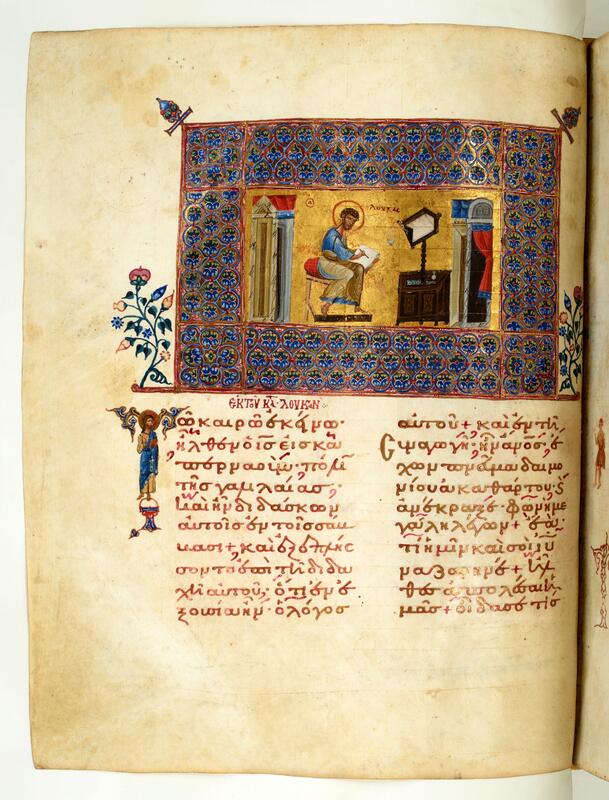 λουκας
ἐκ τοῦ κτ̀ λουκᾶν
Τῶ καιρῶ ἐκείνω·
ἦλθεν ὁ ἰς εἰς κα
περναούμ· πόλιν
τῆς γαλιλαίας·
καὶ ἦν διδάσκων
αὐτοὺς ἐν τοῖς σάβ
βασι + καὶ ἐξεπλήσ
σοντο ἐπὶ τῆ διδα
χῆ αὐτοῦ, ὅτι ἐν ἐ
ξουσία ἦν ὁ λόγος
αὐτοῦ + καὶ ἐν τῆ
συναγωγῆ ἦν ἄνος ἔ
χων πνεῦμα δαιμο
νίου ἀκαθάρτου· ϗ
ἀνέκραξε φωνῆ με
γάλη λέγων + ἔα·
τί ἡμῖν καὶ σοὶ ἰυ
ναζαρηνέ + ἦλ
θες ἀπολέσαι ἡ
μᾶς + οἶδά σε τίς